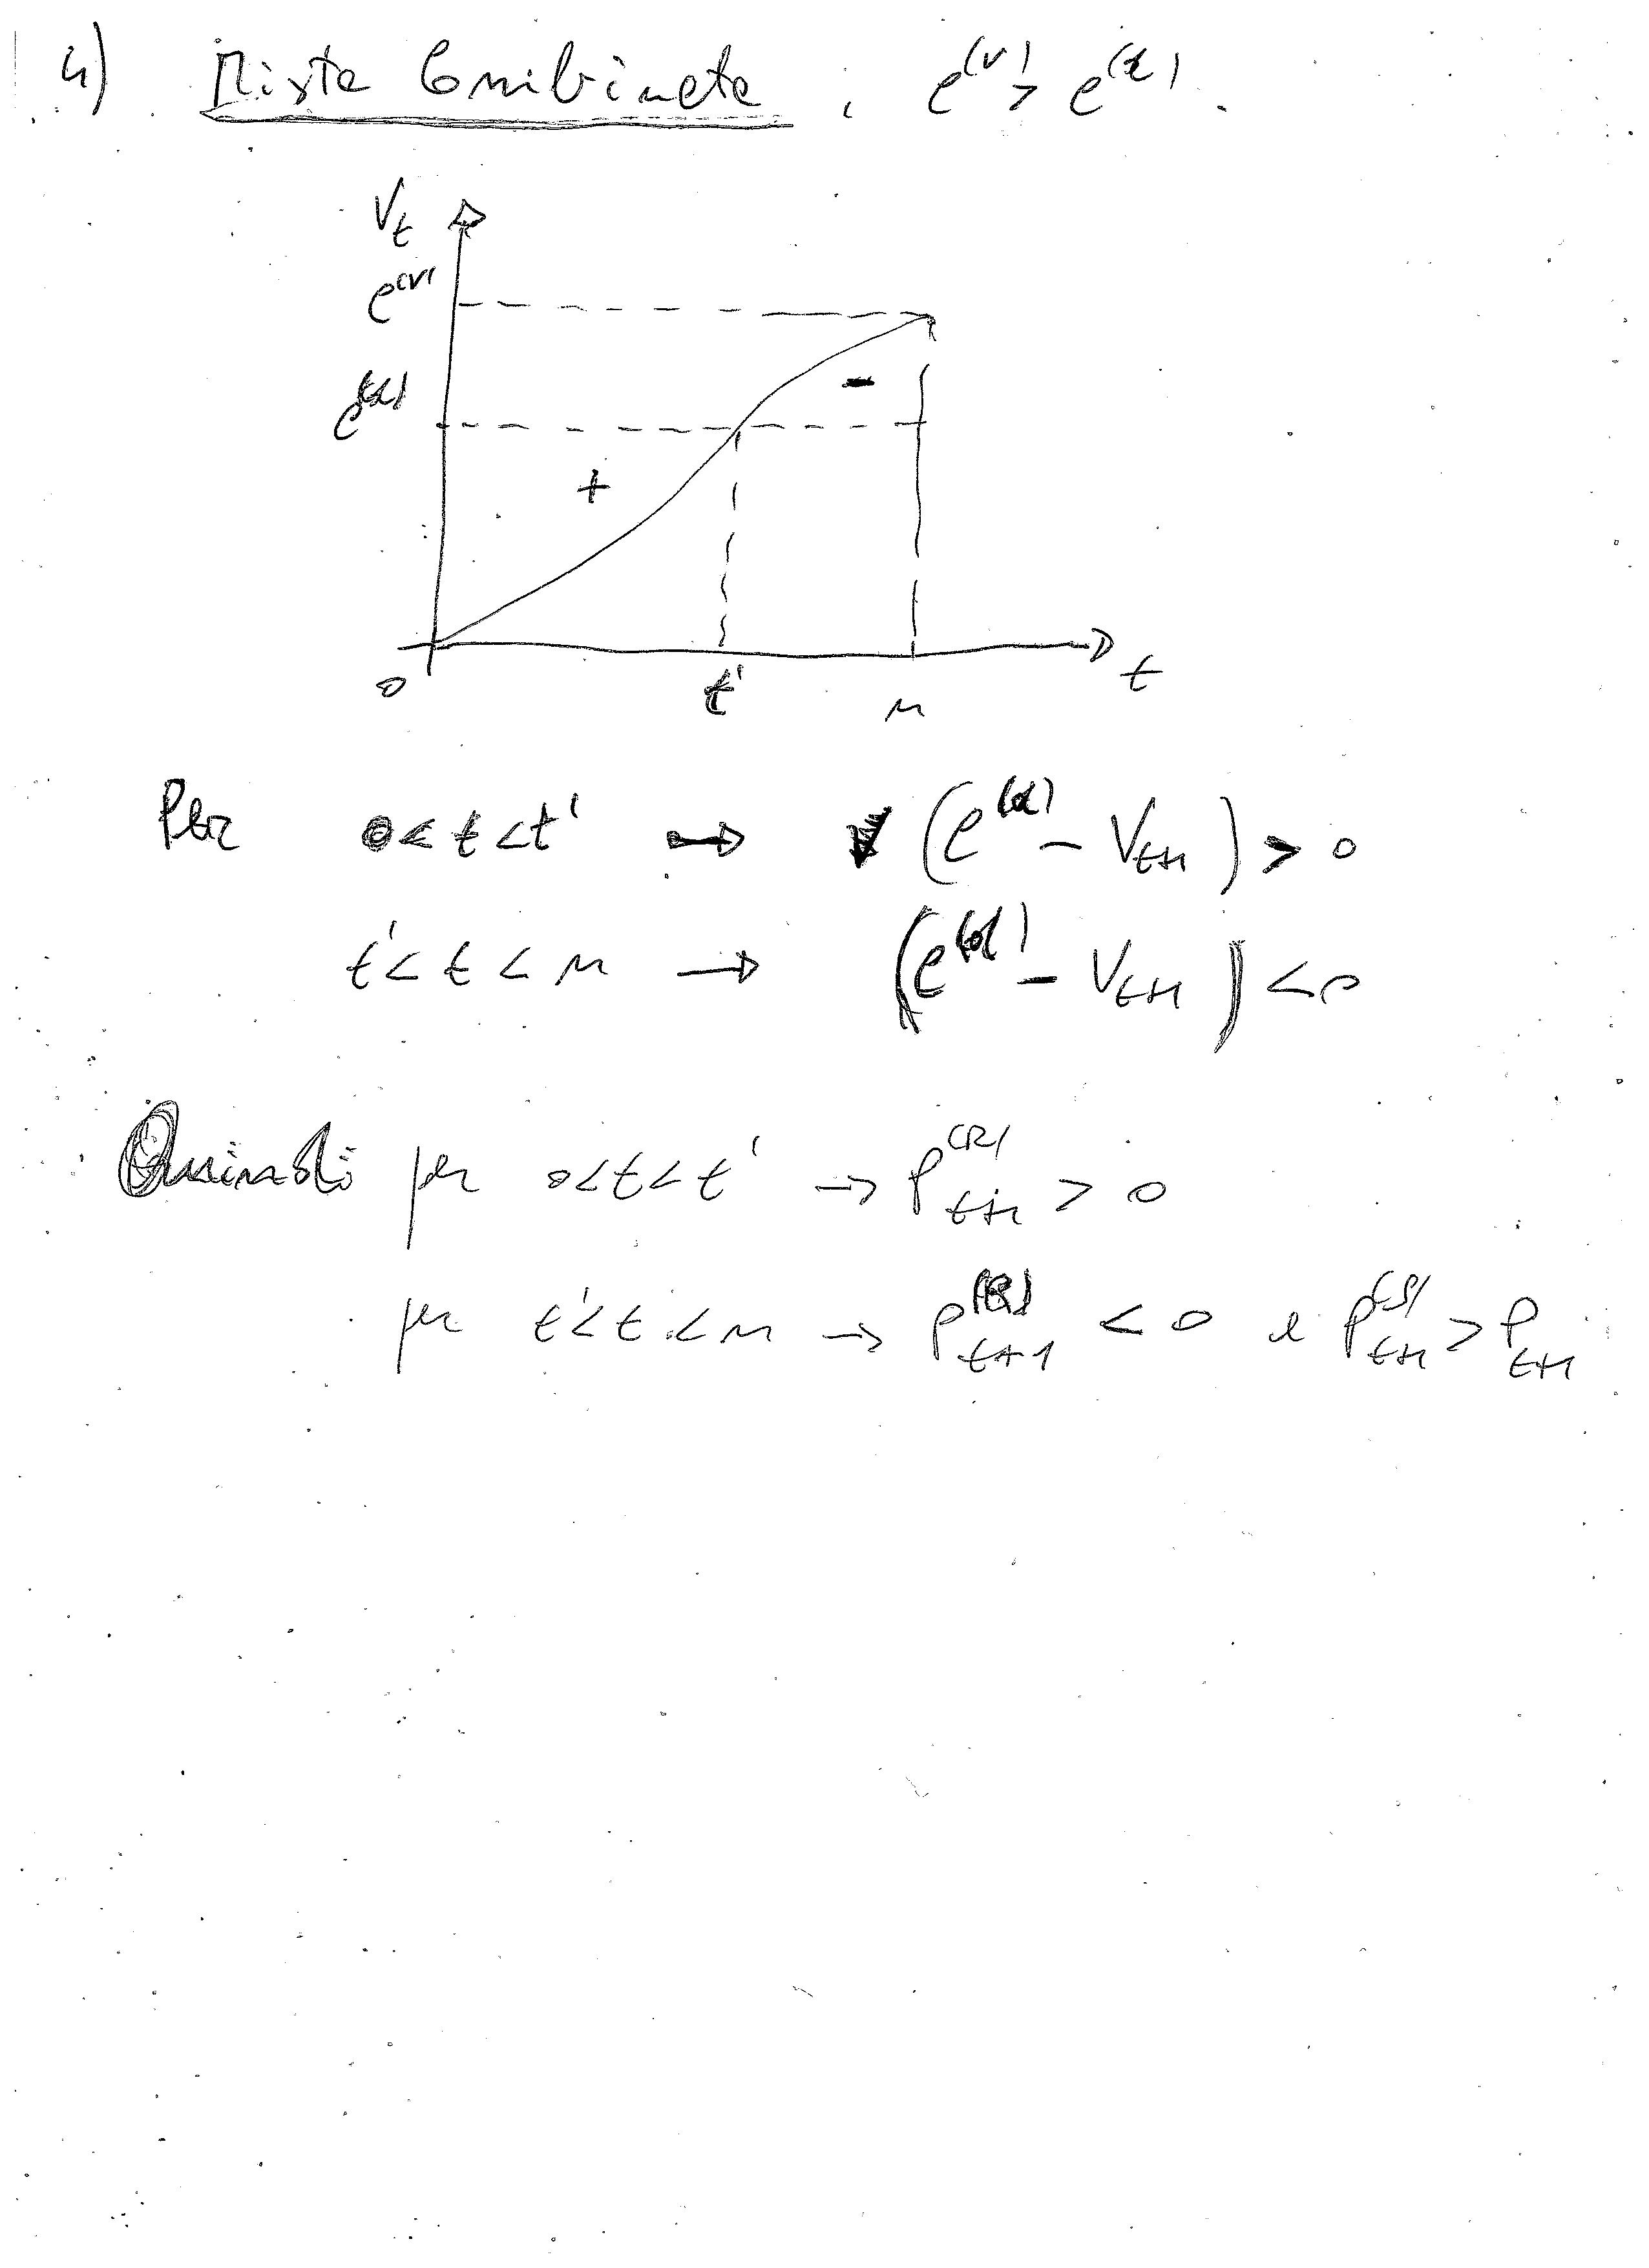 4) Mista Combinata , C^(V) > C^(d).
V_t
C^(V)
C^(d)
-
+
0 t' n t
Per 0 < t < t' → (C^(d) - V_t+1) > 0
t' < t < n → (C^(d) - V_t+1) < 0
Quindi per 0 < t < t' → P_t+1^(R) > 0
per t' < t < n → P_t+1^(R) < 0 e P_t+1^(S) > P_t+1